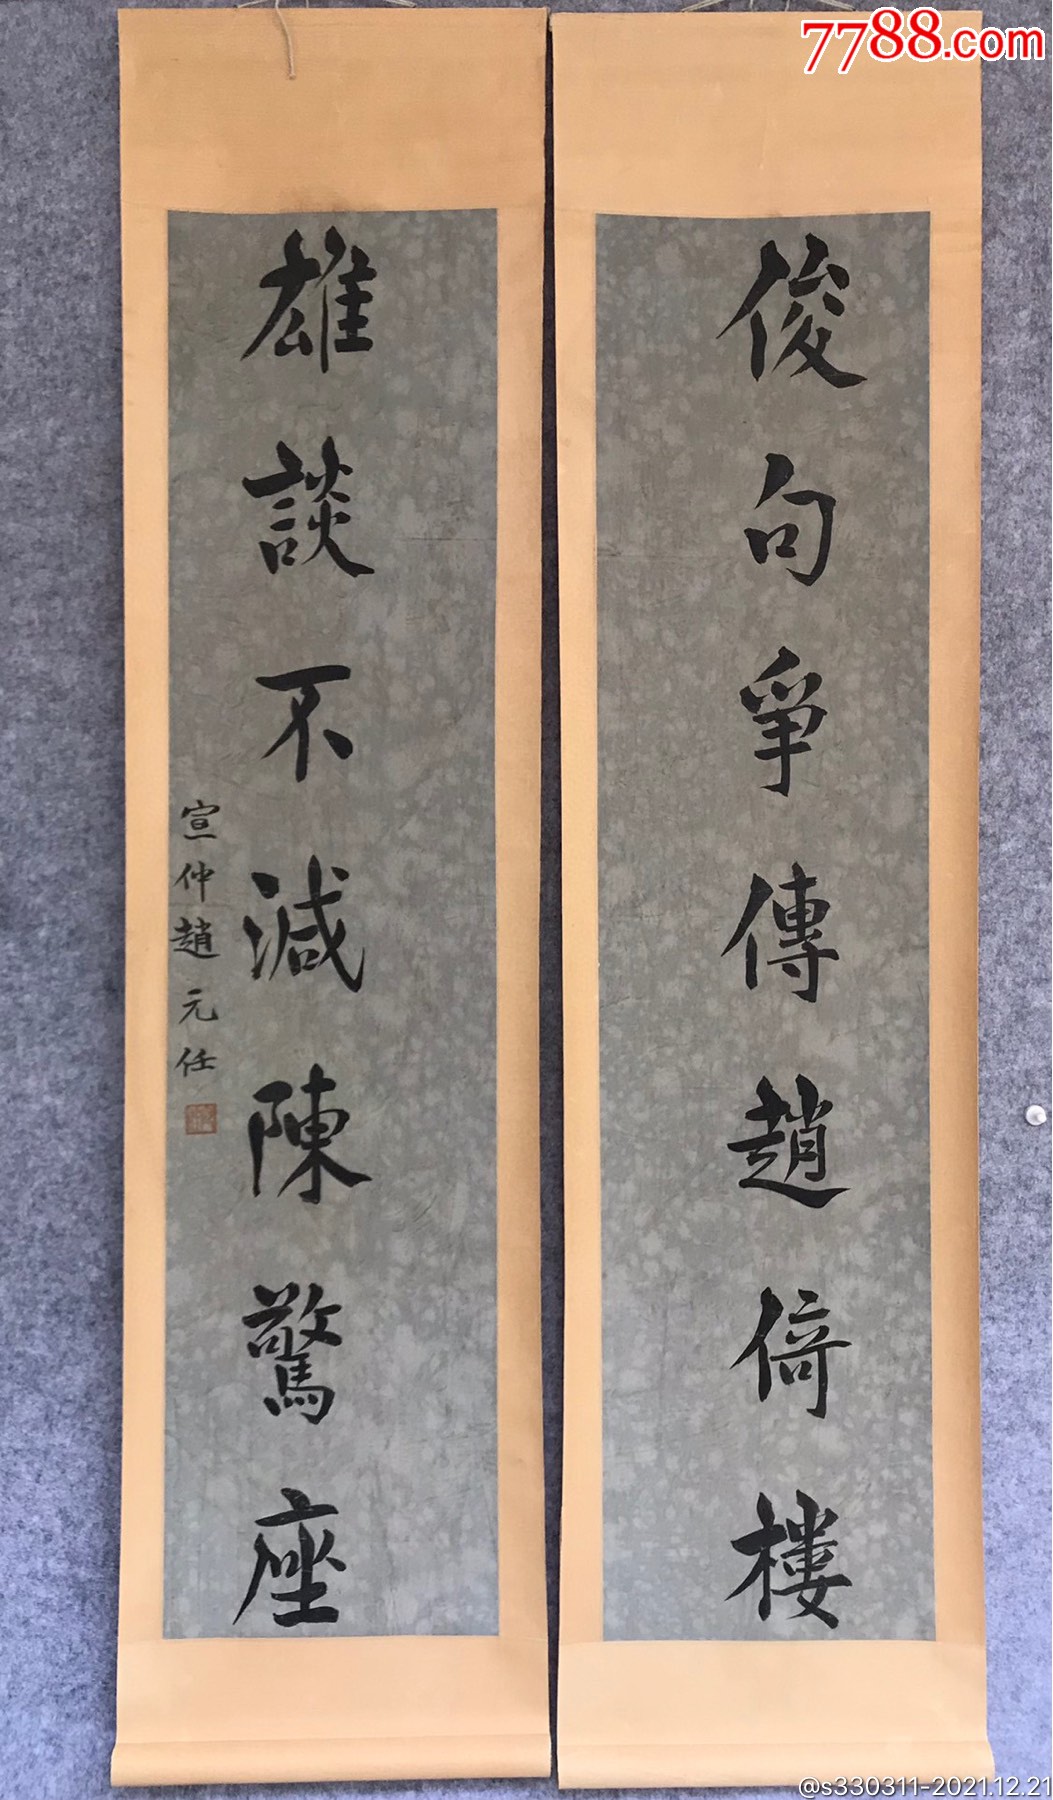 俊句爭傳趙倚樓
雄談不減陳驚座
宣仲趙元任
7788.com
@s330311-2021.12.21